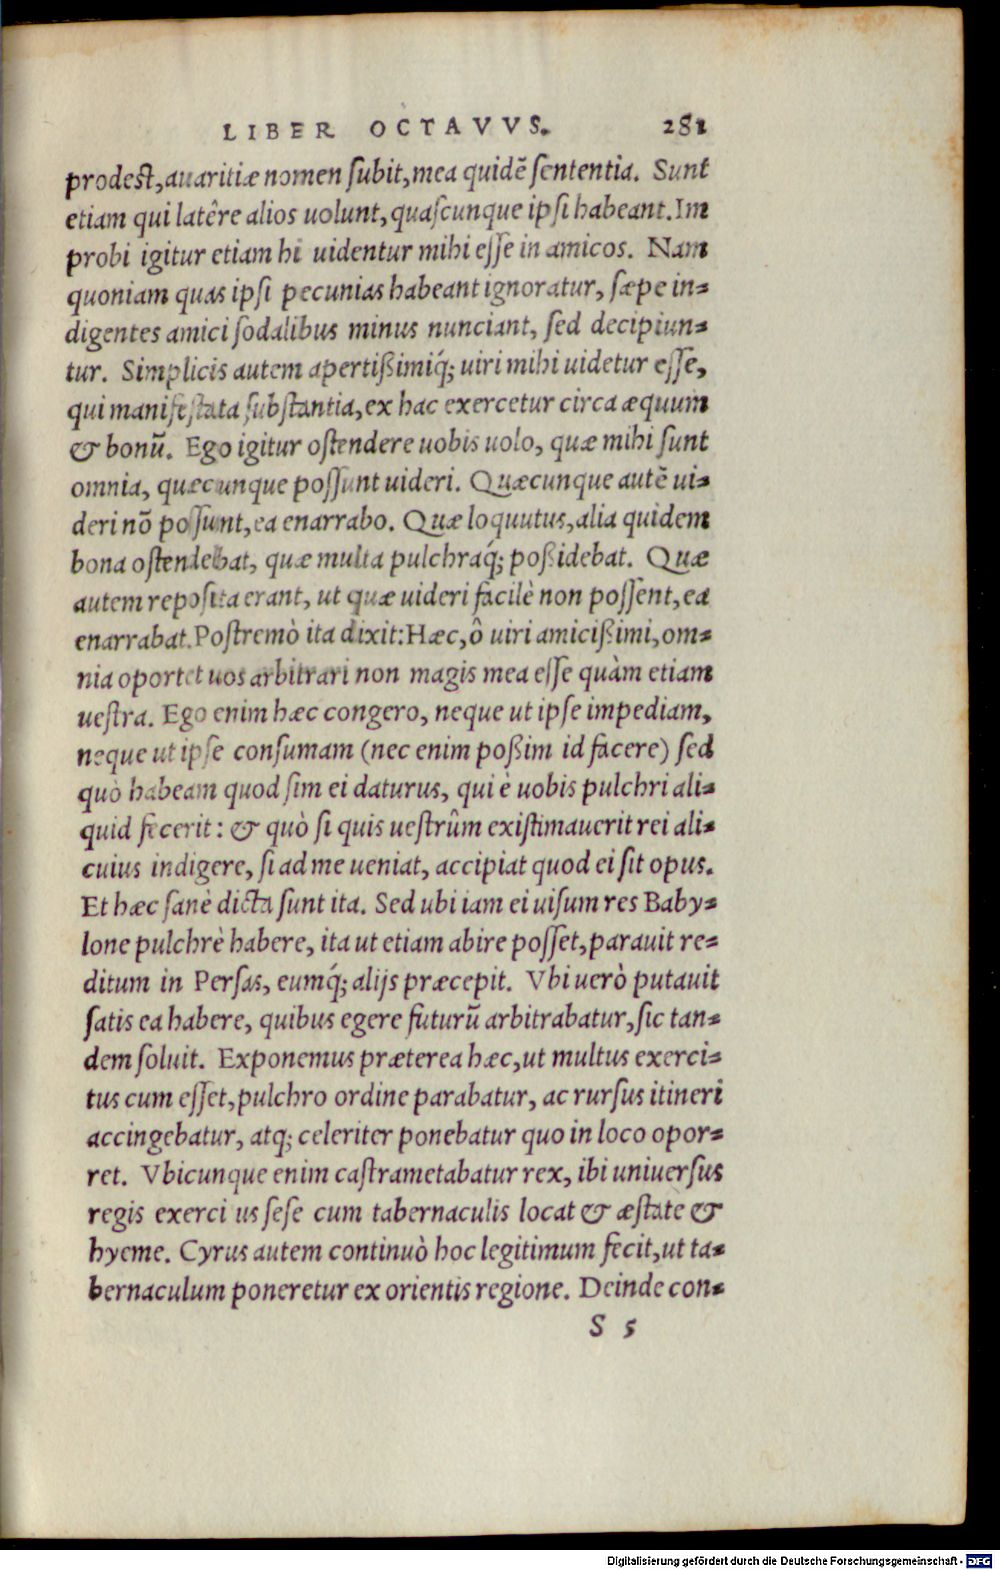 LIBER OCTAVVS. 281
prodest, auaritiæ nomen subit, mea quidẽ sententia. Sunt
etiam qui latêre alios uolunt, quascunque ipsi habeant. Im
probi igitur etiam hi uidentur mihi esse in amicos. Nam
quoniam quas ipsi pecunias habeant ignoratur, sæpe in-
digentes amici sodalibus minus nunciant, sed decipiun-
tur. Simplicis autem apertißimiq́; uiri mihi uidetur esse,
qui manifestata substantia, ex hac exercetur circa æquum
& bonũ. Ego igitur ostendere uobis uolo, quæ mihi sunt
omnia, quæcunque possunt uideri. Quæcunque autẽ ui-
deri nõ possunt, ea enarrabo. Quæ loquutus, alia quidem
bona ostendebat, quæ multa pulchraq́; poßidebat. Quæ
autem reposita erant, ut quæ uideri facilè non possent, ea
enarrabat. Postremò ita dixit: Hæc, ô uiri amicißimi, om-
nia oportet uos arbitrari non magis mea esse quàm etiam
uestra. Ego enim hæc congero, neque ut ipse impediam,
neque ut ipse consumam (nec enim poßim id facere) sed
quò habeam quod sim ei daturus, qui è uobis pulchri ali-
quid fecerit: & quò si quis uestrûm existimauerit rei ali-
cuius indigere, si ad me ueniat, accipiat quod ei sit opus.
Et hæc sanè dicta sunt ita. Sed ubi iam ei uisum res Baby-
lone pulchrè habere, ita ut etiam abire posset, parauit re-
ditum in Persas, eumq́; alijs præcepit. Vbi uerò putauit
satis ea habere, quibus egere futurũ arbitrabatur, sic tan-
dem soluit. Exponemus præterea hæc, ut multus exerci-
tus cum esset, pulchro ordine parabatur, ac rursus itineri
accingebatur, atq; celeriter ponebatur quo in loco opor-
ret. Vbicunque enim castrametabatur rex, ibi uniuersus
regis exerci us sese cum tabernaculis locat & æstate &
hyeme. Cyrus autem continuò hoc legitimum fecit, ut ta-
bernaculum poneretur ex orientis regione. Deinde con-
S 5
Digitalisierung gefördert durch die Deutsche Forschungsgemeinschaft - DFG